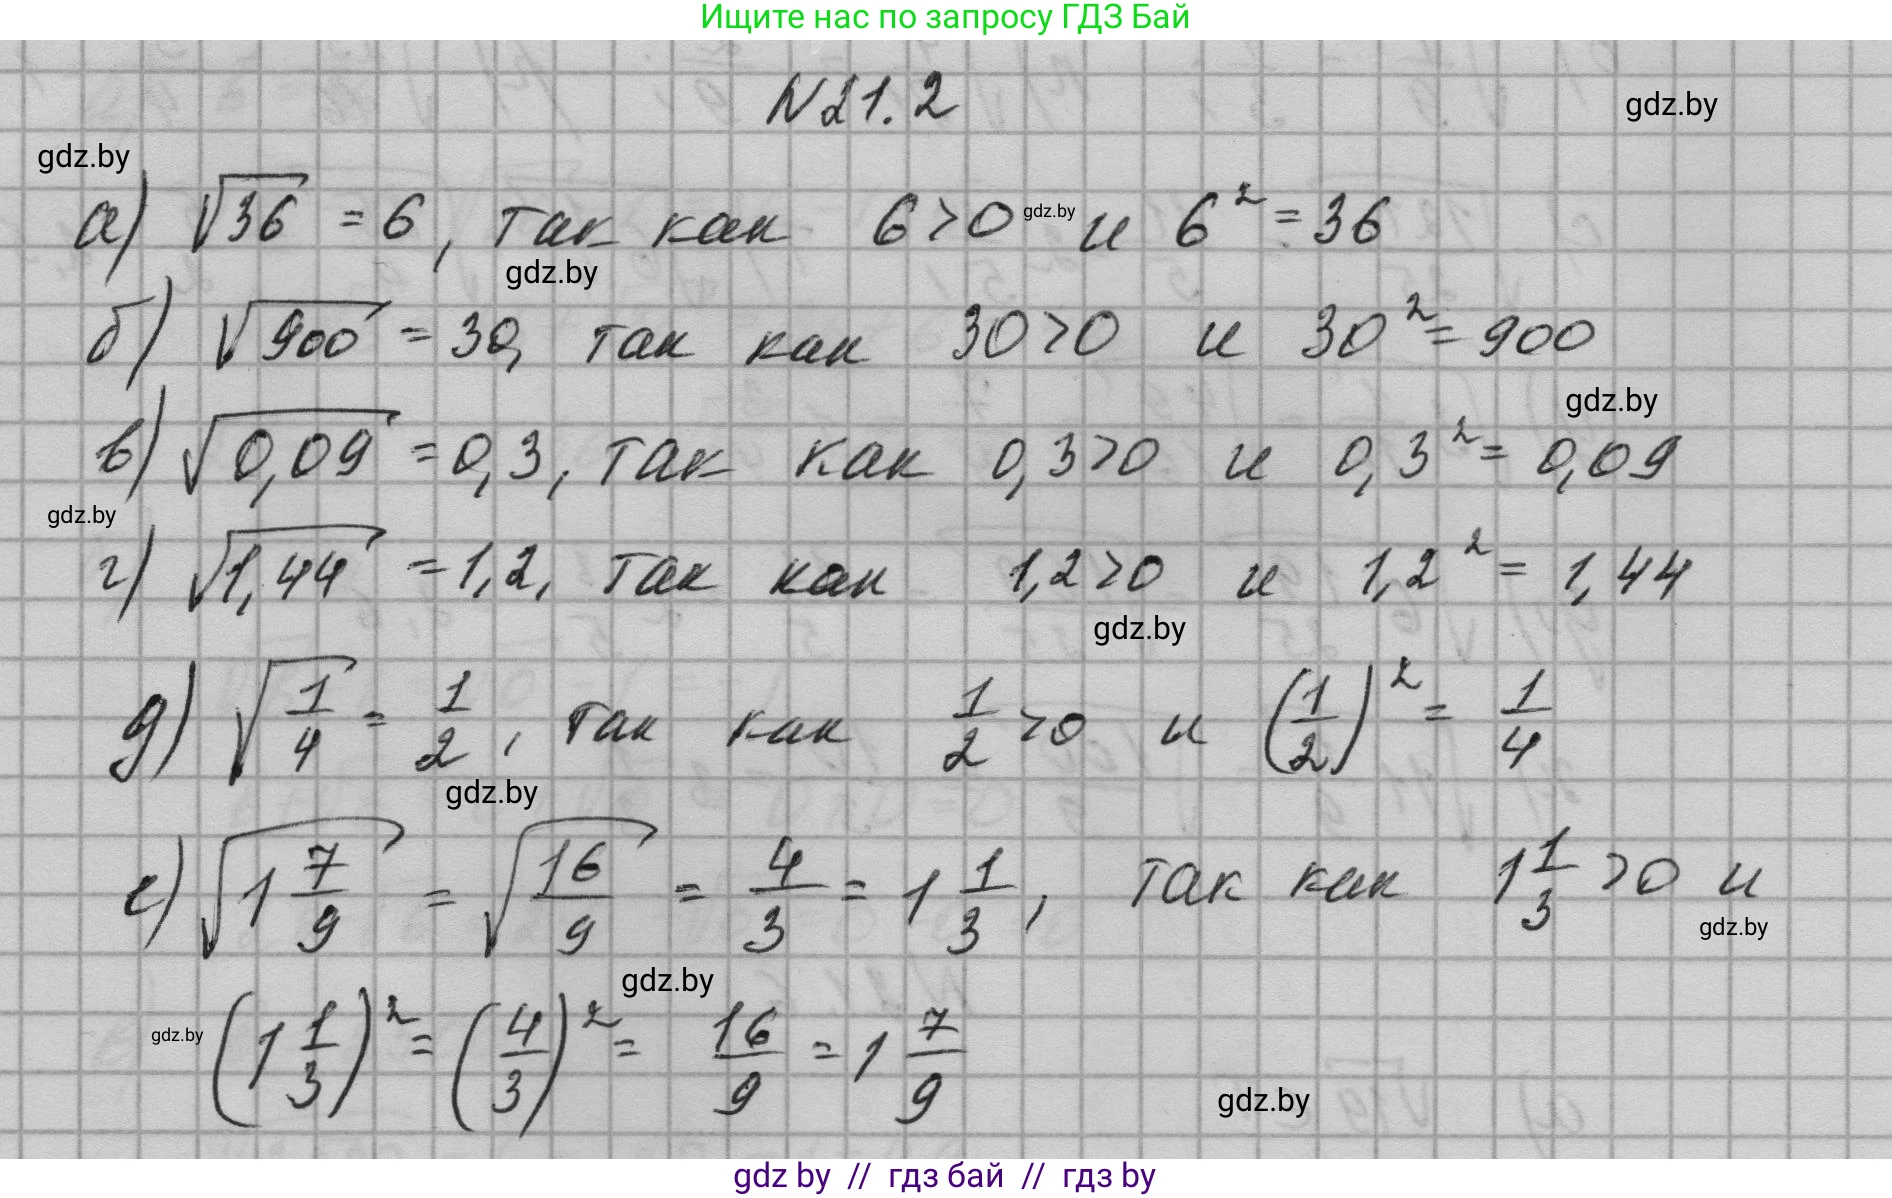 Ищите нас по запросу ГДЗ Бай
N21.2
gdz.by
gdz.by
а) √36 = 6, так как 6>0 gdz.by и 6² = 36
gdz.by
б) √900 = 30, так как 30>0 и 30² = 900
gdz.by
в) √0,09 = 0,3, так как 0,3>0 и 0,3² = 0,09
gdz.by
г) √1,44 = 1,2, так как 1,2>0 и 1,2² = 1,44
gdz.by
д) √(1/4) = 1/2, так как 1/2 >0 и (1/2)² = 1/4
gdz.by
е) √(1 7/9) = √(16/9) = 4/3 = 1 1/3, так как 1 1/3 >0 и
gdz.by
gdz.by
gdz.by
(1 1/3)² = (4/3)² = 16/9 = 1 7/9
gdz.by
gdz by // гдз бай // гдз by